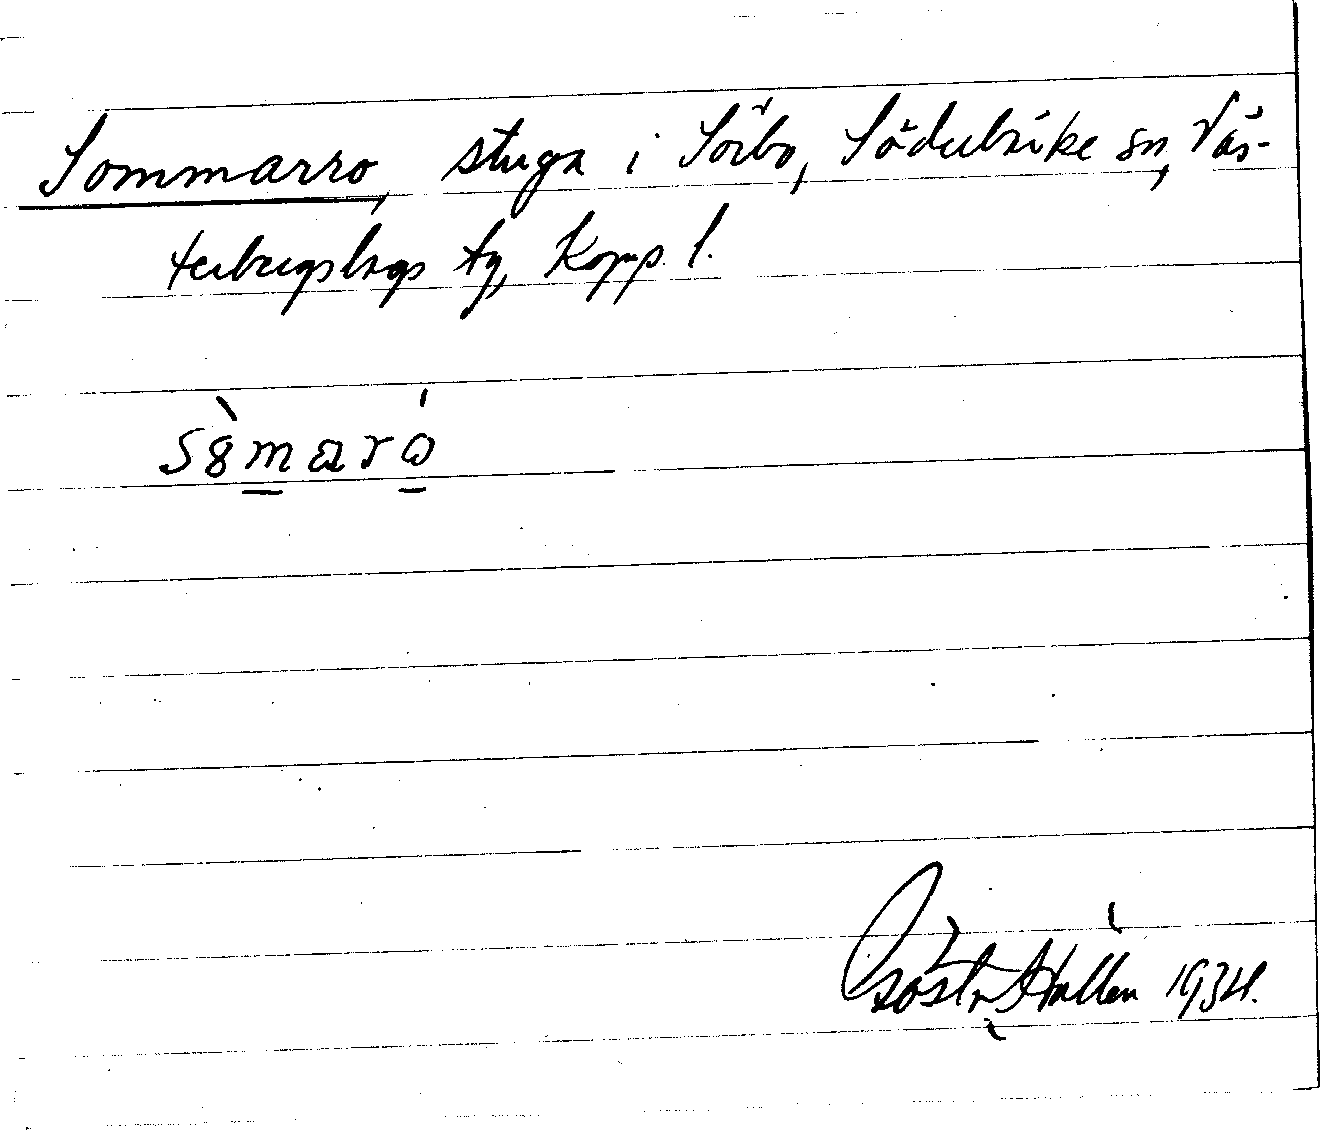 Sommarro, stuga i Sörbo, Söderbärke sn, Väs-
terbergslags tg, Kopp. l.
sòmaró
Gösta Hallén 1934.